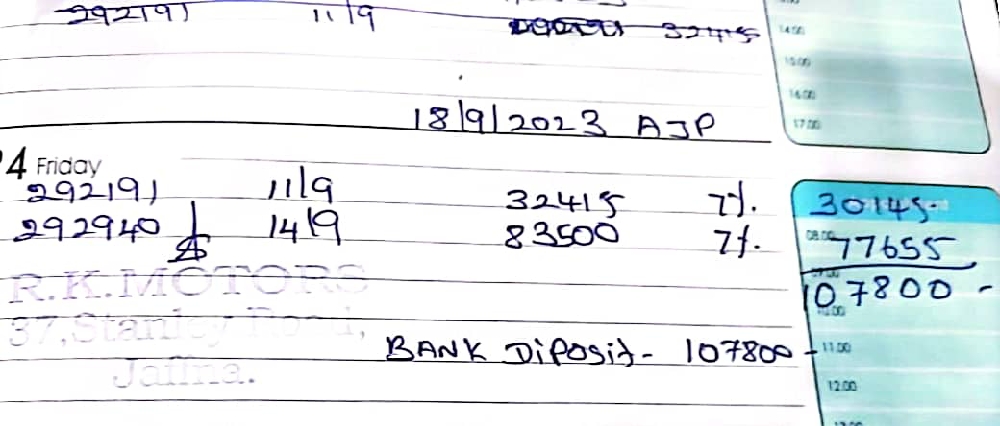 292191 11/9 32415
14:00
15:00
16:00
18/9/2023 AJP
17:00
4 Friday
292191 11/9 32415 7%. 30145-
292940 14/9 83500 7%. 08:00 77655
107800 -
R.K.MOTORS
37, Stanley Road,
BANK DiPosit - 107800 - 11:00
Jaffna.
12:00